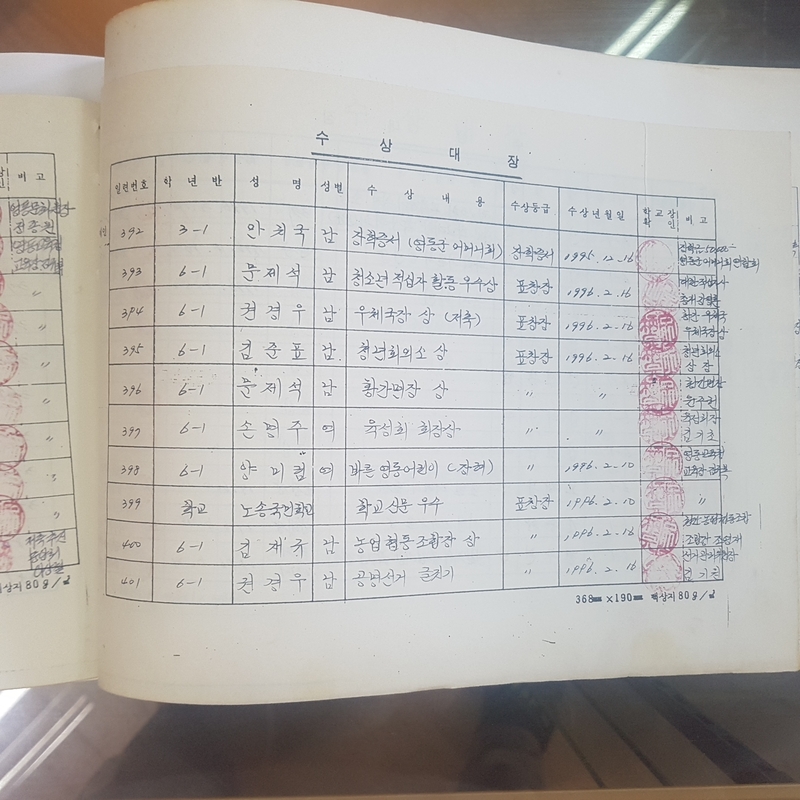 수 상 대 장
일련번호 학 년 반 성 명 성별 수 상 내 용 수상등급 수상년월일 학교장 확인 비 고
392 3-1 안치국 남 장학증서 (영동군 어머니회) 장학증서 1995.12.16
영동군 어머니회 연합회
393 6-1 문제석 남 청소년 적십자 활동 우수상 표창장 1996.2.16 대한적십자사
394 6-1 권경우 남 우체국장 상 (저축) 표창장 1996.2.16 황간 우체국
우체국장 상
395 6-1 김준표 남 청년회의소 상 표창장 1996.2.16 청년회의소
상장
396 6-1 문제석 남 황간면장 상 〃 〃 황간면장
397 6-1 손명주 여 육성회 회장상 〃 〃 육성회장
398 6-1 양미 여 바른 영동어린이 (장려) 〃 1996.2.10 영동교육청
교육장
399 학교 노송국민학교 학교신문 우수 표창장 1996.2.10 〃
400 6-1 김재규 남 농업협동조합장 상 〃 1996.2.16 황간농업협동조합
조합장
401 6-1 권경우 남 공명선거 글짓기 〃 1996.2.16
368㎜ ×190㎜ 백상지 80g/㎡
비 고
〃
〃
〃
〃
〃
〃
〃
상지 80g/㎡